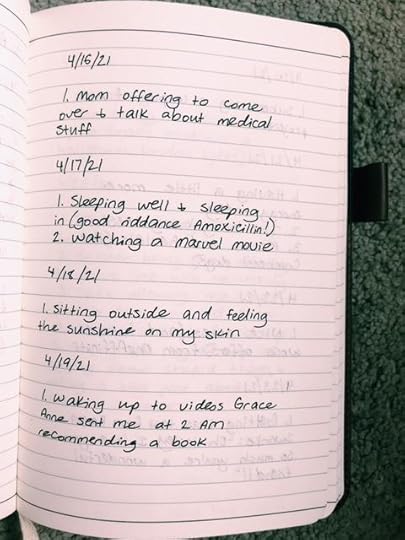 4/16/21
1. Mom offering to come
over & talk about medical
stuff
4/17/21
1. Sleeping well & sleeping
in (good riddance Amoxicillin!)
2. Watching a marvel movie
4/18/21
1. Sitting outside and feeling
the sunshine on my skin
4/19/21
1. Waking up to videos Grace
Anne sent me at 2 AM
recommending a book